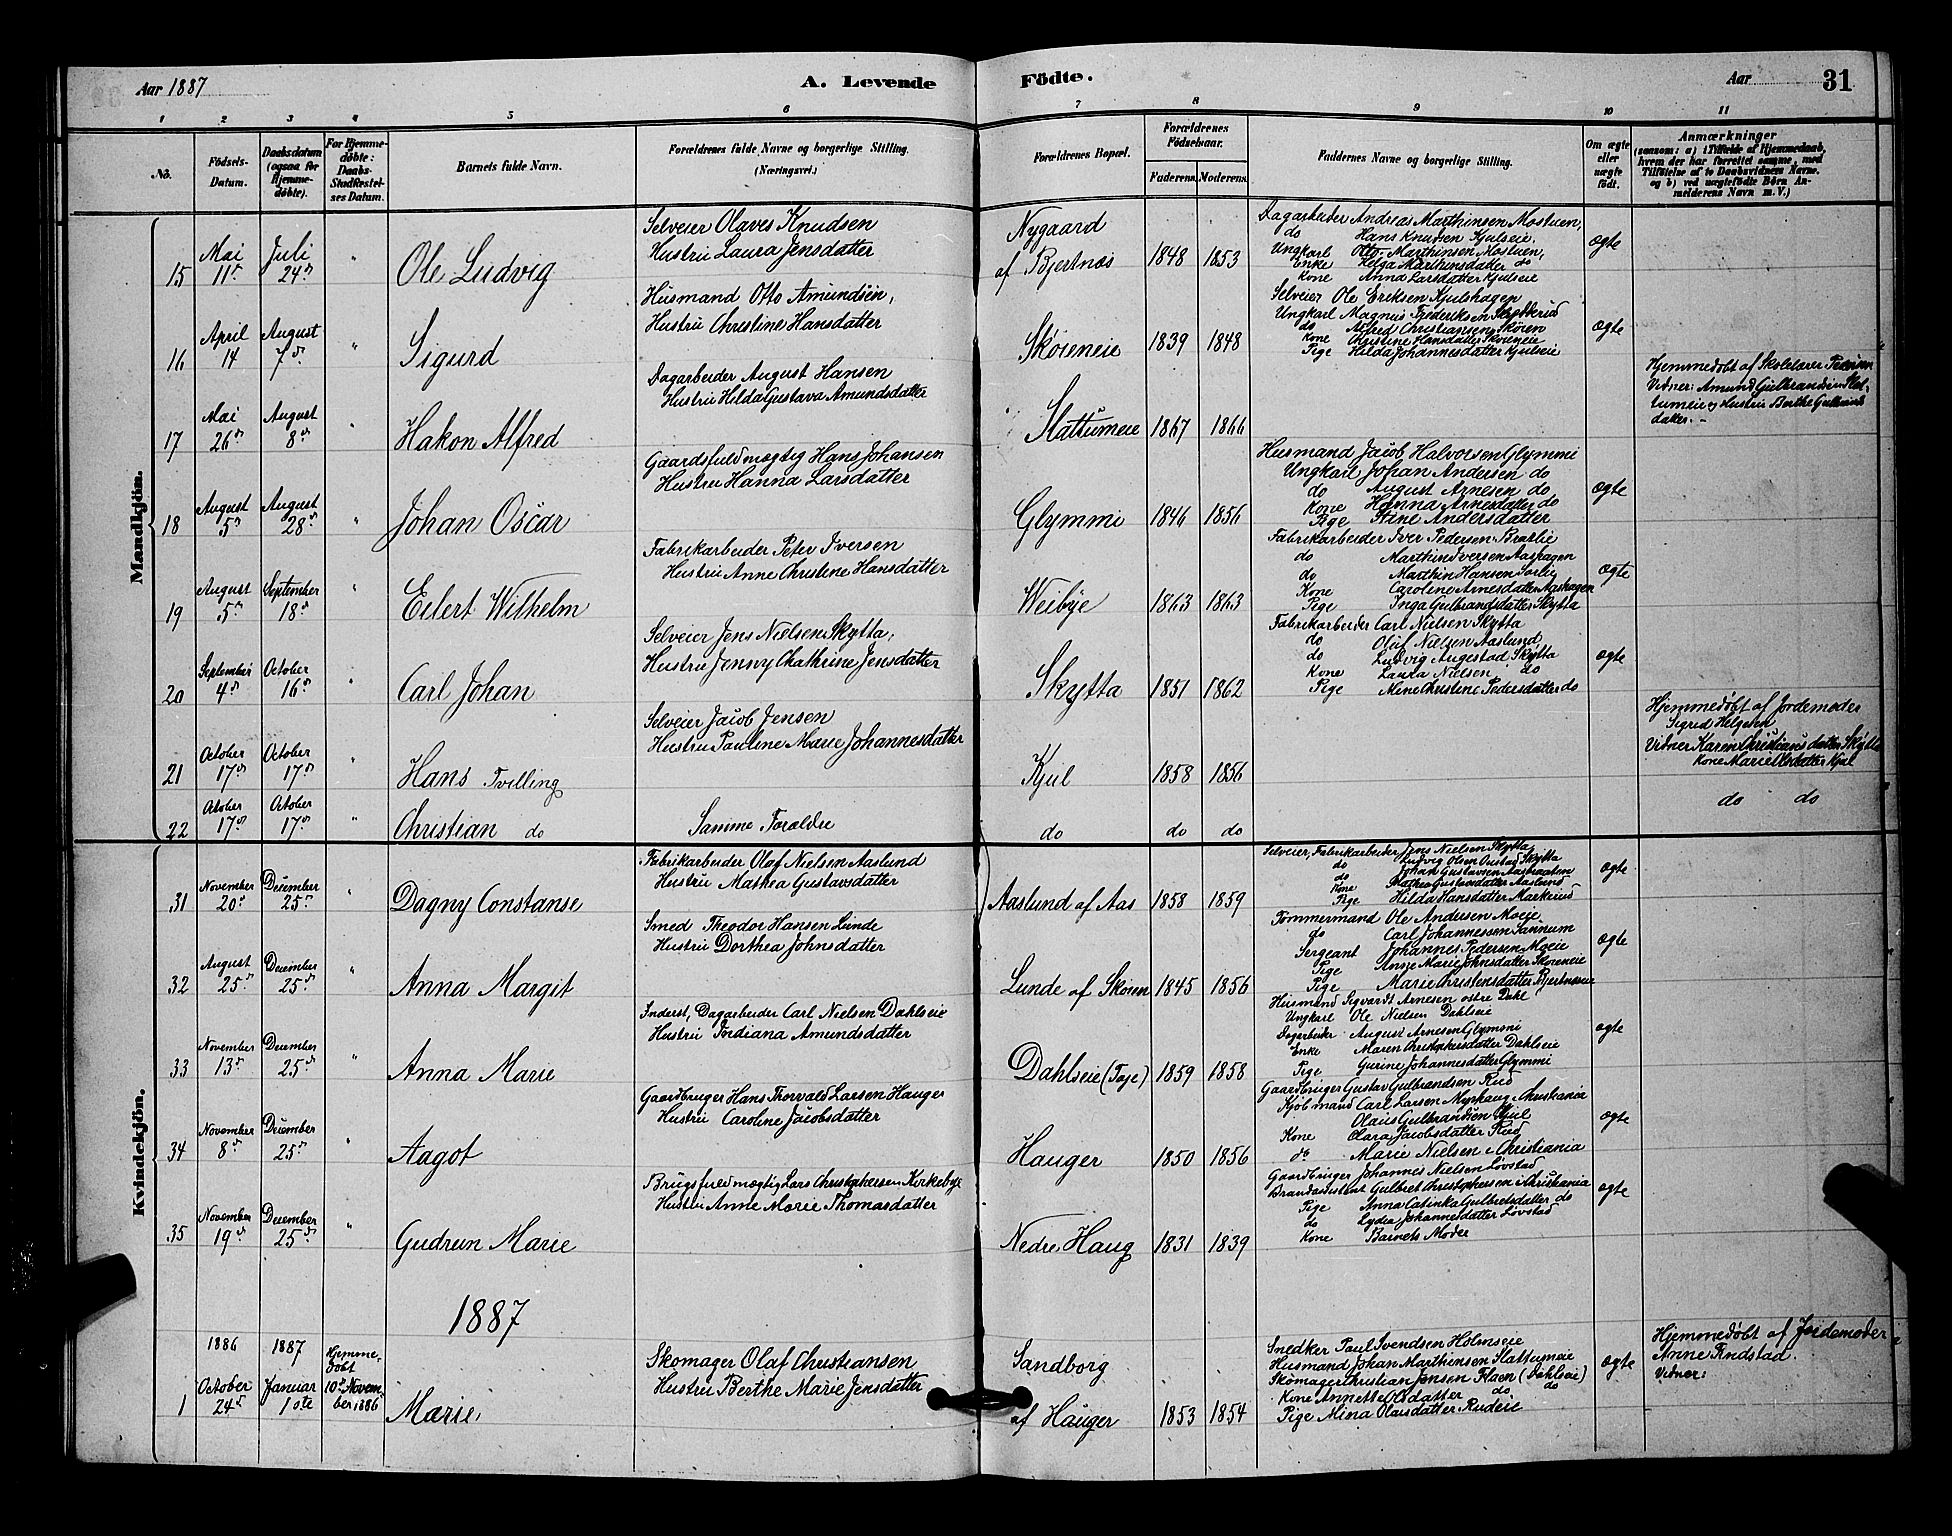 Aar 1887
A. Levende Födte.
Aar 31
1 2 3 4 5 6 7 8 9 10 11
No.
Födsels-Datum.
Daabsdatum (ogsaa for Hjemmedöbte).
For Hjemmedöbte: Daabs-Stadfæstelses Datum.
Barnets fulde Navn.
Forældrenes fulde Navne og borgerlige Stilling. (Næringsvei.)
Forældrenes Bopæl.
Forældrenes Födselsaar.
Faderens. Moderens.
Faddernes Navne og borgerlige Stilling.
Om ægte eller uægte födt.
Anmærkninger
(saasom: a) i Tilfælde af Hjemmedaab, hvem der har forrettet samme, med Tilföielse af to Daabsvidners Navne. og b) ved uægtefödte Börn Anmelderens Navn m. V.)
Mandkjön.
15 Mai 11te Juli 24de " Ole Ludvig
Selveier Olaves Knudsen
Hustru Laura Jensdatter
Nygaard
af Bjertnæs 1848 1853
Dagarbeider Andreas Marthinsen Mostuen,
do Hans Knudsen Kjulseie,
Ungkarl Otto Marthinsen Mostuen,
Enke Helga Marthinsdatter do
Kone Anna Larsdatter Kjulseie
ægte
16 April 14 August 7de " Sigurd
Husmand Otto Amundsen,
Hustru Christine Hansdatter
Skøieneie 1839 1848
Selveier Ole Eriksen Kjulshagen
Ungkarl Magnus Frederiksen
do Alfred Christiansen Skøien
Kone Christine Hansdatter Skøieneie
Pige Hilda Johannesdatter Kjulseie
ægte
17 Mai 26de August 8de " Hakon Alfred
Dagarbeider August Hansen
Hustru Hilda Gustava Amundsdatter
Slattumeie 1867 1866
Hjemmedøbt af Skolelærer Pedersen
Vidner: Amund Gulbrandsen Slattumeie og Hustru Berthe Gulbrandsdatter. -
18 August 5te August 28de " Johan Oscar
Gaardsfuldmægtig Hans Johansen
Hustru Hanna Larsdatter
Glymmi 1846 1856
Husmand Jacob Halvorsen Glymmi
Ungkarl Johan Andersen do
do August Arnesen do
Kone Hanna Arnesdatter do
Pige Stine Andersdatter
ægte
19 August 5te September 18de " Eilert Wilhelm
Fabrikarbeider Peter Iversen
Hustru Anne Christine Hansdatter
Weibye 1863 1863
Fabrikarbeider Iver Pedersen
do Marthin Iversen Aashagen
do Marthin Hansen
Kone Caroline Arnesdatter Aashagen
Pige Inga Gulbrandsdatter Skytta
ægte
20 September 4de October 16de " Carl Johan
Selveier Jens Nielsen Skytta,
Hustru Jenny Chathrine Jensdatter
Skytta 1851 1862
Fabrikarbeider Carl Nielsen Skytta
do Oluf Nielsen Aaslund
do Ludvig Augestad Skytta
Kone Laura Nielsen do
Pige Mine Christine Pedersdatter do
ægte
21 October 17de October 17de " Hans Tvilling
Selveier Jacob Jensen
Hustru Pauline Marie Johannesdatter
Kjul 1858 1856
Hjemmedøbt af Jordemoder
Sigrid Helgesen
Vidner Karen Christiansdatter Skytta
Kone Marie Olsdatter Kjul
22 October 17de October 17de " Christian do
Samme Forældre
do do do
do do
Kvindekjön.
31 November 20de December 25de " Dagny Constanse
Fabrikarbeider Olaf Nielsen Aaslund
Hustru Mathea Gustavsdatter
Aaslund af Aas 1858 1859
Selveier, Fabrikarbeider Jens Nielsen Skytta
do Ludvig Olsen Skytta
do Johan Gustavsen
Kone Mathea Gustavsdatter Aaslund
Pige Hilda Hansdatter Markerud
ægte
32 August 25de December 25de " Anna Margit
Smed Theodor Hansen Lunde
Hustru Dorthea Johnsdatter
Lunde af Skøien 1845 1856
Tømmermand Ole Andersen Moeie
do Carl Johannessen Tannum
Sergeant Johannes Pedersen Moeie
Pige Anne Marie Johnsdatter Skøieneie
Pige Marie Christensdatter Bjertnæseie
ægte
33 November 13de December 25de " Anna Marie
Inderst, Dagarbeider Carl Nielsen Dahlseie
Hustru Jordiana Amundsdatter
Dahlseie (Taje) 1859 1858
Husmand Sigvardt Arnesen østre Dahl
Ungkarl Ole Nielsen Dahlseie
Dagarbeider August Arnesen Glymmi
Enke Maren Christophersdatter Dahlseie
Pige Gurine Johannesdatter Glymmi
ægte
34 November 8de December 25de " Aagot
Gaardbruger Hans Thorvald Larsen Hauger
Hustru Caroline Jacobsdatter
Hauger 1850 1856
Gaardbruger Gustav Gulbrandsen Rud
Kjøbmand Carl Larsen Myrhaug i Christiania
Olaus Gulbrandsen Kjul
Kone Clara Jacobsdatter Rud
do Marie Nielsen i Christiania
ægte
35 November 19de December 25de " Gudrun Marie
Brugsfuldmægtig Lars Christophersen Kirkebye
Hustru Anne Marie Thomasdatter
Nedre Haug 1831 1839
Gaardbruger Johannes Nielsen Løvstad
Brandassistent Gulbret Christophersen i Christiania
Pige Anna Catinka Gulbretsdatter do
do Lydia Johannesdatter Løvstad
Kone Barnets Moder
ægte
1887
1 1886 October 24de 1887 Januar 1ste Hjemmedøbt 10de November 1886 Marie,
Skomager Olaf Christiansen
Hustru Berthe Marie Jensdatter
Sandborg
af Hauger 1853 1854
Snedker Paul Svendsen Holmseie
Husmand Johan Marthinsen Slattumeie
Skomager Christian Jensen Flaen (Dahlseie)
Kone Annette Olsdatter do do
Pige Mina Olausdatter Rudeie
ægte
Hjemmedøbt af Jordemoder
Anne Rudstad.
Vidner: